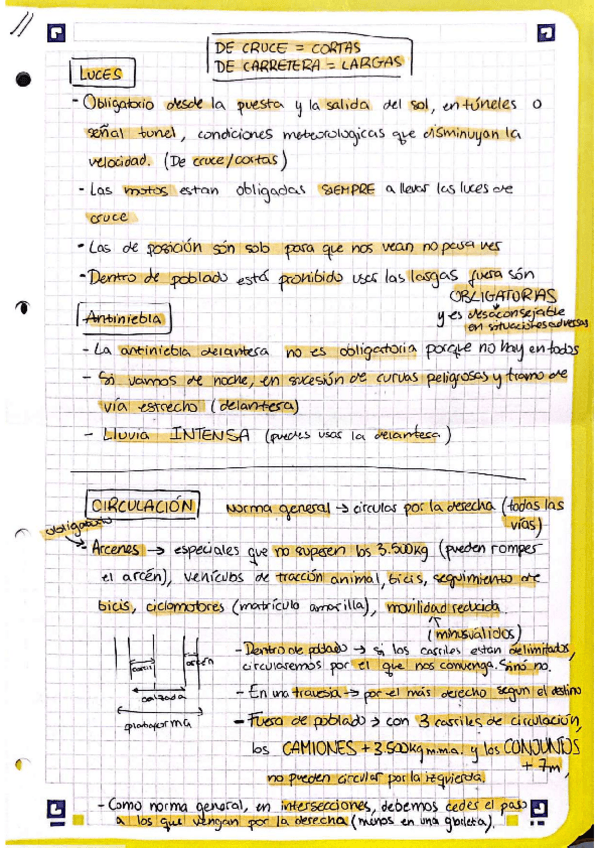 DE CRUCE = CORTAS
DE CARRETERA = LARGAS
LUCES
- Obligatorio desde la puesta y la salida del sol, en túneles o
señal tunel, condiciones meteorologicas que disminuyan la
velocidad. (De cruce/cortas)
- Las motos estan obligadas SIEMPRE a llevar las luces de
cruce
- Las de posición són solo para que nos vean no para ver
- Dentro de poblado está prohibido usar las largas fuera són
OBLIGATORIAS
y es desaconsejable
en situaciones adversas
Antiniebla
- La antiniebla delantera no es obligatoria porque no hay en todos
- Si vamos de noche, en sucesión de curvas peligrosas y tramo de
vía estrecho (delantera)
- Lluvia INTENSA (puedes usar la delantera)
CIRCULACIÓN
Norma general → circular por la derecha (todas las
vías)
obligatorio
- Arcenes → especiales que no superen los 3.500kg (pueden romper
el arcén), vehículos de tracción animal, bicis, seguimiento de
bicis, ciclomotores (matrícula amarilla), movilidad reducida.
(minusválidos)
carril
arcén
calzada
plataforma
- Dentro de poblado → si los carriles estan delimitados,
circularemos por el que nos convenga. Sinó no.
- En una travesia → por el más derecho según el destino
- Fuera de poblado → con 3 carriles de circulación,
los CAMIONES + 3.500kg m.m.a. y los CONJUNTOS
+ 7m,
no pueden circular por la izquierda.
- Como norma general, en intersecciones, debemos ceder el paso
a los que vengan por la derecha (menos en una glorieta).